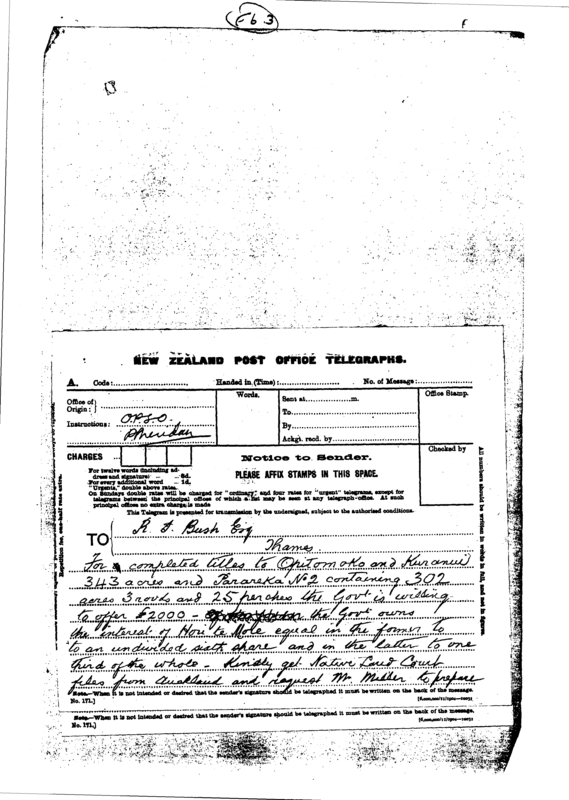 Eb 3
NEW ZEALAND POST OFFICE TELEGRAPHS.
A. Code: Handed in (Time): No. of Message:
Office of Origin: Words. Sent at m. Office Stamp.
To
Instructions: OPSO. By
P Sheridan Ackgt. recd. by
CHARGES Notice to Sender. Checked by
For twelve words (including address and signature) 8d.
For every additional word 1d.
"Urgents," double above rates.
PLEASE AFFIX STAMPS IN THIS SPACE.
On Sundays double rates will be charged for "ordinary," and four rates for "urgent" telegrams, except for
telegrams between the principal offices of which a list may be seen at any telegraph-office. At such
principal offices no extra charge is made
This Telegram is presented for transmission by the undersigned, subject to the authorised conditions.
TO R. F. Bush Esq
Thames
For completed titles to Opitomoko and Kuranui
343 acres and Parareka No 2 containing 302
acres 3 roods and 25 perches the Govt is willing
to offer £2000 - the Govt owns
the interest of Hori te Mole equal in the former to
to an undivided sixth share and in the latter to one
third of the whole. Kindly get Native Land Court
files from Auckland and request Mr. Miller to prepare
Note.—When it is not intended or desired that the sender's signature should be telegraphed it must be written on the back of the message.
No. 171.)
Note.—When it is not intended or desired that the sender's signature should be telegraphed it must be written on the back of the message.
No. 171.)
All numbers should be written in words in full, and not in figures.